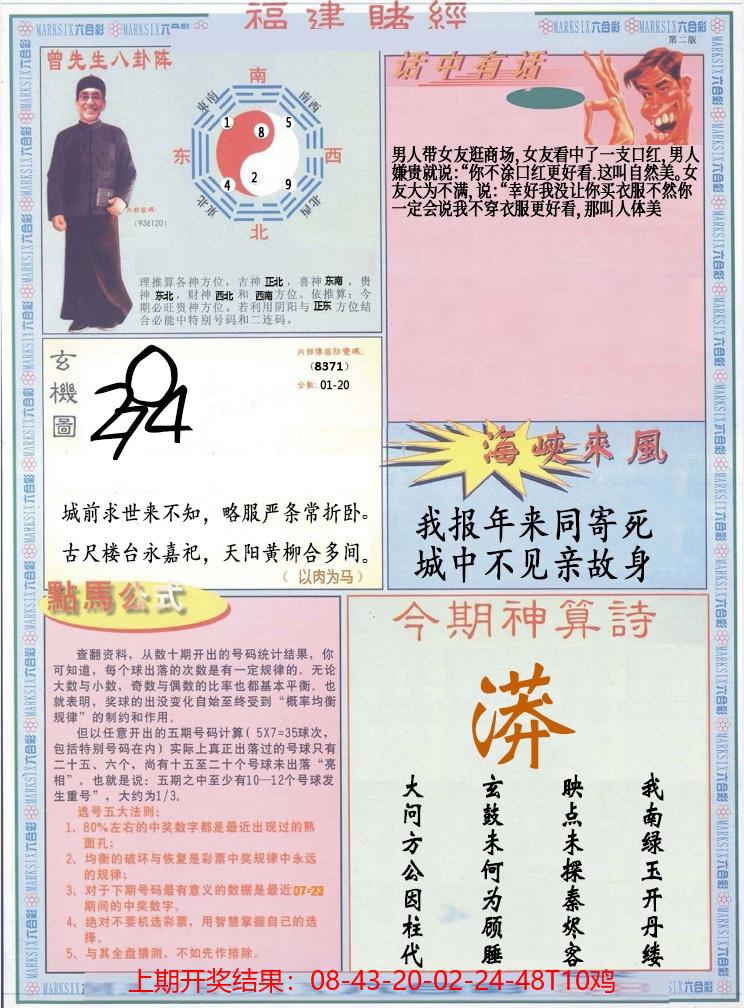 福建賭經
MARKSIX六合彩
第二版
曾先生八卦阵
南
东南
南西
1
8
5
东
西
4
2
9
東北
北西
北
内部密碼:
(936120)
理推算各神方位，吉神正北，喜神东南，贵
神东北，财神西北和西南方位。依推算：今
期必旺贵神方位。若利用阴阳与正东方位结
合必能中特别号码和二连码。
话中有话
男人带女友逛商场,女友看中了一支口红,男人
嫌贵就说:“你不涂口红更好看.这叫自然美。女
友大为不满,说:“幸好我没让你买衣服不然你
一定会说我不穿衣服更好看,那叫人体美
玄機圖
内部傳密防蠱碼:
(8371)
合數:01-20
城前求世来不知，略服严条常折卧。
古尺楼台永嘉祀，天阳黄柳合多间。
（以肉为马）
海峽來風
我报年来同寄死
城中不见亲故身
點馬公式
查翻资料，从数十期开出的号码统计结果，你
可知道，每个球出落的次数是有一定规律的。无论
大数与小数，奇数与偶数的比率也都基本平衡。也
就表明，奖球的出没变化自始至终受到“概率均衡
规律”的制约和作用。
但以任意开出的五期号码计算( 5X7=35球次，
包括特别号码在内）实际上真正出落过的号球只有
二十五、六个，尚有十五至二十个号球未出落“亮
相”。也就是说：五期之中至少有10—12个号球发
生重号”，大约为1/3。
选号五大法则：
1、80%左右的中奖数字都是最近出现过的熟
面孔；
2、均衡的破坏与恢复是彩票中奖规律中永远
的规律；
3、对于下期号码最有意义的数据是最近07-22
期间的中奖数字。
4、绝对不要机选彩票，用智慧掌握自己的选
择。
5、与其全盘猜测，不如先作排除.
今期神算詩
漭
我南绿玉开丹缕
映点未探秦烬客
玄鼓未何为顾睡
大问方公因柱代
上期开奖结果：08-43-20-02-24-48T10鸡